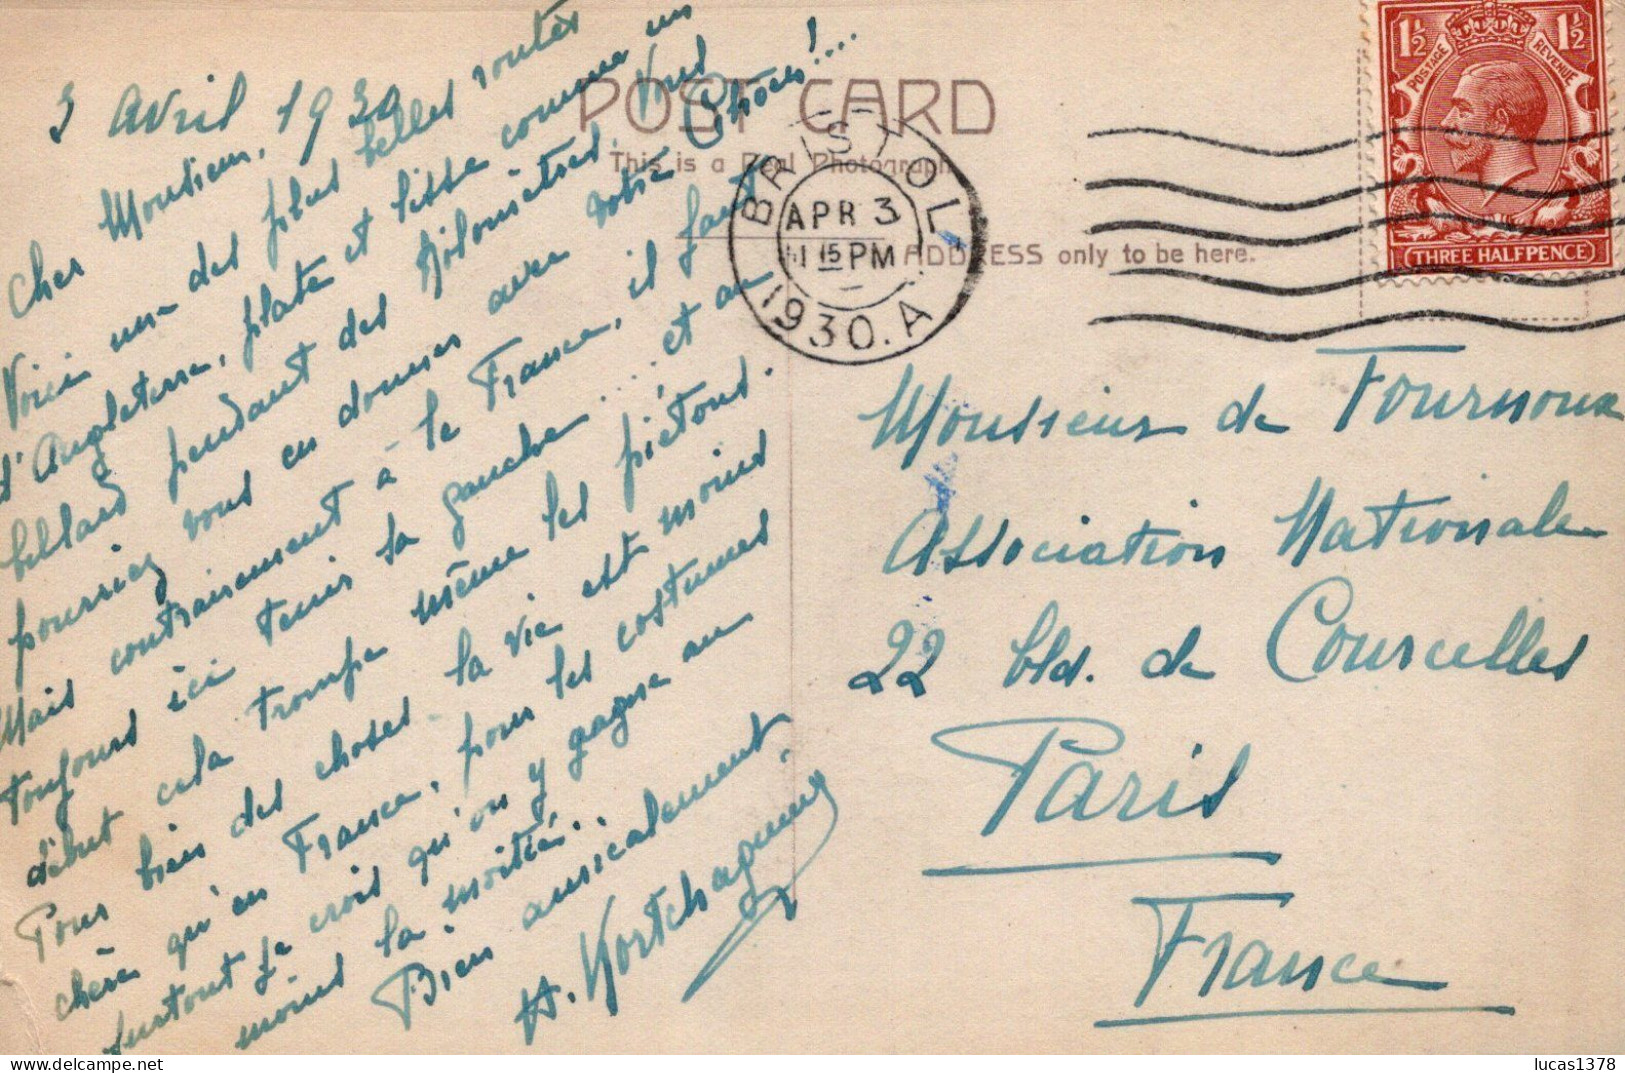 3 Avril, 1930
Cher Monsieur,
Voici une des plus belles routes
d'Angleterre, plate et lisse comme un
billard pendant des kilomètres. Vous
pourriez vous en donner avec votre !...
Mais contrairement à la France, il faut
toujours ici tenir la gauche.... et au
début cela trompe même les piétons.
Pour bien des choses la vie est moins
chère qu'en France, pour les costumes
surtout je crois qu'on y gagne au
moins la moitié..
Bien amicalement,
POST CARD
This is a Real Photograph
ADDRESS only to be here.
BRISTOL
APR 3
11 15 PM
1930. A
1½ 1½
POSTAGE REVENUE
THREE HALFPENCE
Monsieur de Fournoux
Association Nationale
22 bld. de Courcelles
Paris
France
lucas1378